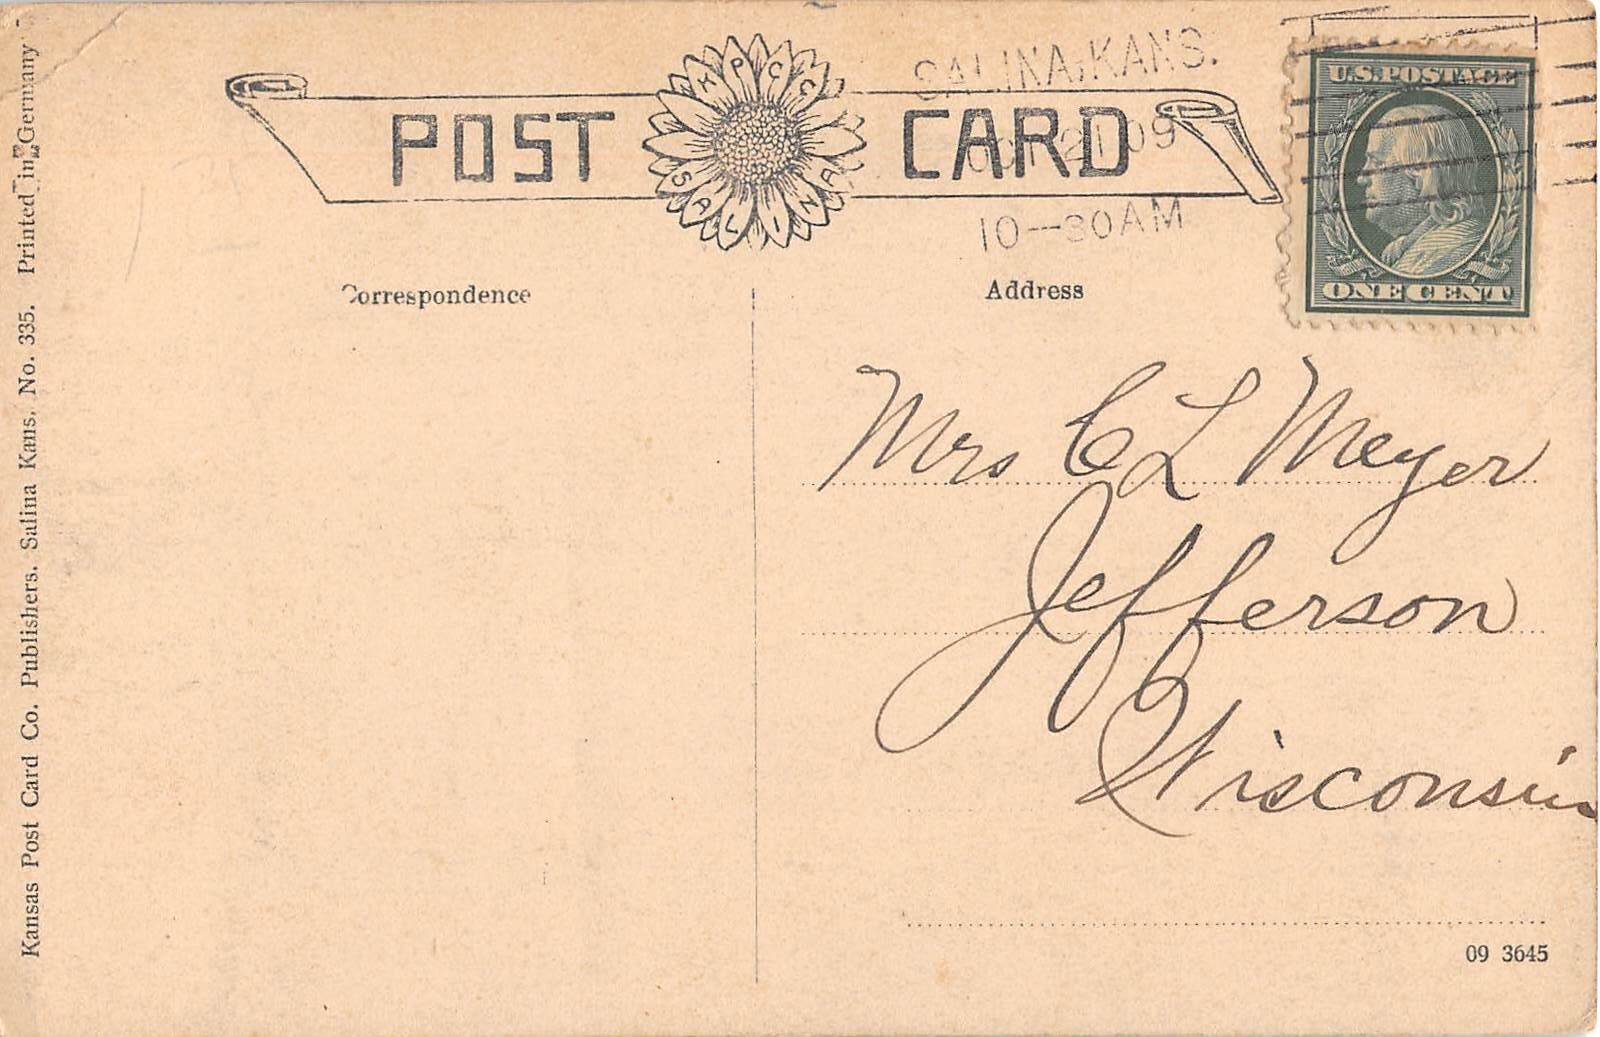 POST CARD
K P C C
SALINA
SALINA, KANS.
OCT 21 09
10-30 AM
U.S. POSTAGE
ONE CENT
Correspondence
Address
Mrs C L Meyer
Jefferson
Wisconsin
09 3645
Kansas Post Card Co. Publishers. Salina Kans. No. 335. Printed in Germany